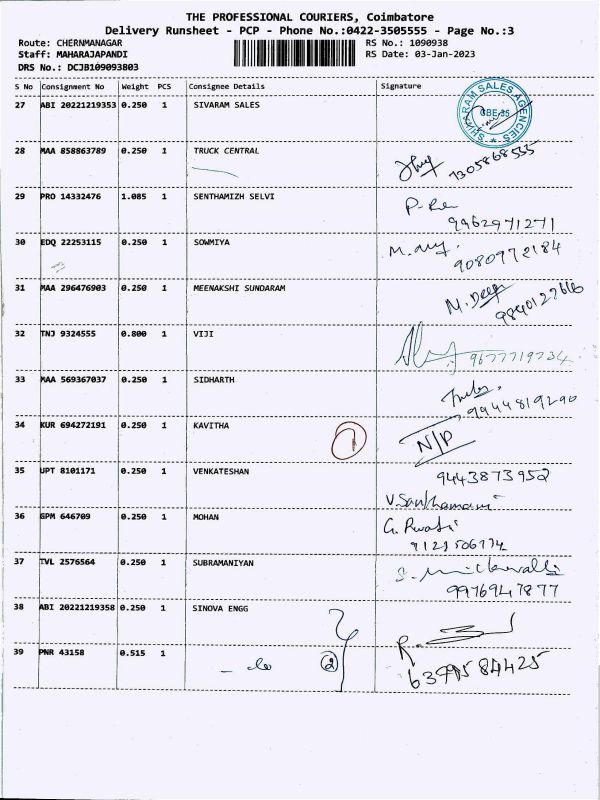 THE PROFESSIONAL COURIERS, Coimbatore
Delivery Runsheet - PCP - Phone No.:0422-3505555 - Page No.:3
Route: CHERNMANAGAR RS No.: 1090938
Staff: MAHARAJAPANDI RS Date: 03-Jan-2023
DRS No.: DCJB109093803
S No Consignment No Weight PCS Consignee Details Signature
27 ABI 20221219353 0.250 1 SIVARAM SALES
SHIVARAM SALES AGENCIES
CBE-35
28 MAA 858863789 0.250 1 TRUCK CENTRAL
7305868535
29 PRO 14332476 1.085 1 SENTHAMIZH SELVI
9962971271
30 EDQ 22253115 0.250 1 SOWMIYA
9080972184
31 MAA 296476903 0.250 1 MEENAKSHI SUNDARAM
M. Deep
9840127616
32 TNJ 9324555 0.800 1 VIJI
9677719734
33 MAA 569367037 0.250 1 SIDHARTH
9944819290
34 KUR 694272191 0.250 1 KAVITHA
1 N/P
35 UPT 8101171 0.250 1 VENKATESHAN
9443873952
V. Santhamani
36 GPM 646709 0.250 1 MOHAN
9121506774
37 TVL 2576564 0.250 1 SUBRAMANIYAN
9976947877
38 ABI 20221219358 0.250 1 SINOVA ENGG
39 PNR 43158 0.515 1
- do 2